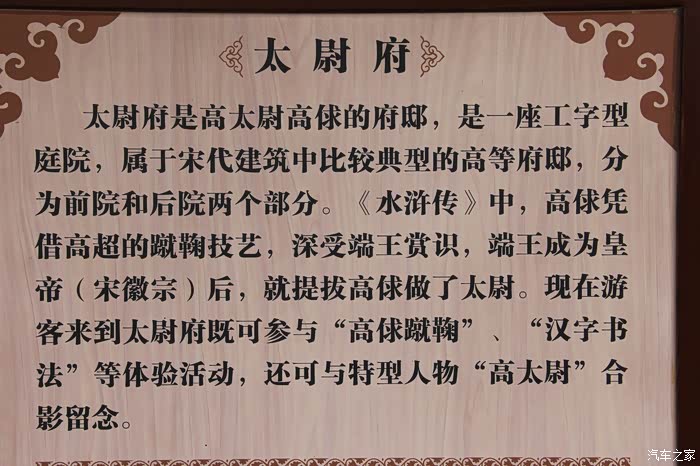 太尉府
太尉府是高太尉高俅的府邸，是一座工字型
庭院，属于宋代建筑中比较典型的高等府邸，分
为前院和后院两个部分。《水浒传》中，高俅凭
借高超的蹴鞠技艺，深受端王赏识，端王成为皇
帝（宋徽宗）后，就提拔高俅做了太尉。现在游
客来到太尉府既可参与“高俅蹴鞠”、“汉字书
法”等体验活动，还可与特型人物“高太尉”合
影留念。
汽车之家